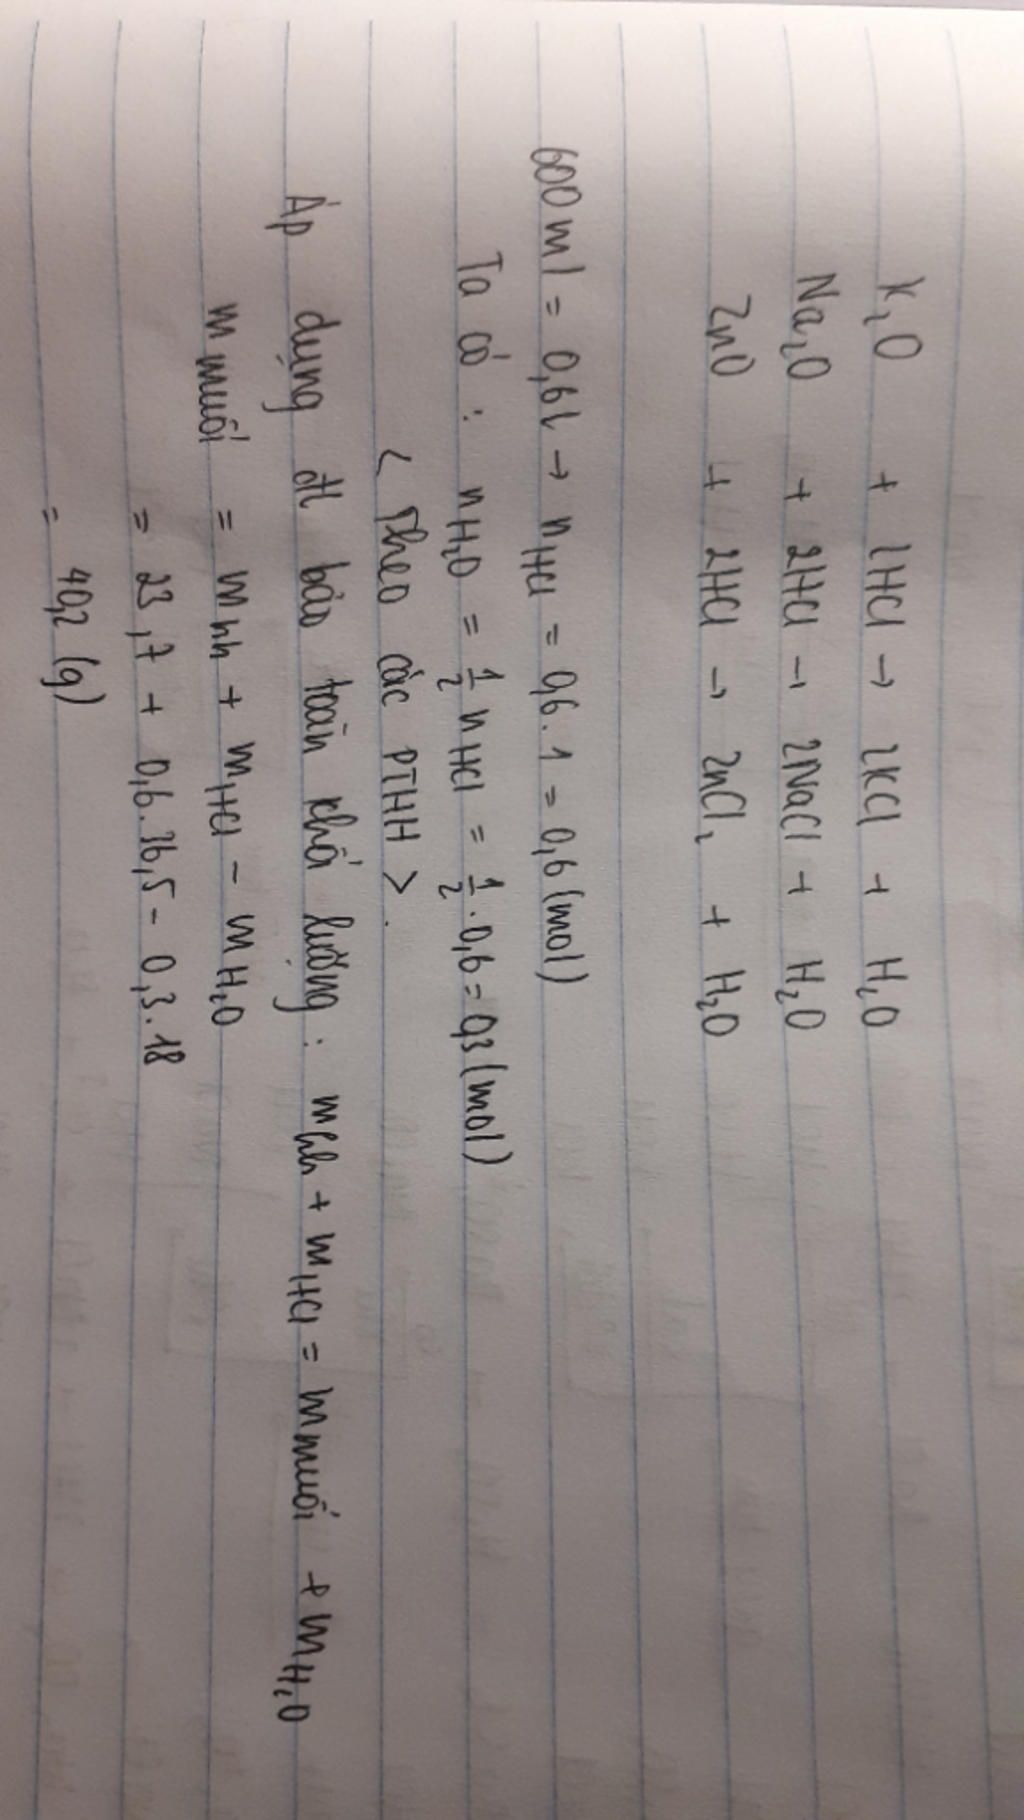 K₂O + 2HCl → 2KCl + H₂O
Na₂O + 2HCl → 2NaCl + H₂O
ZnO + 2HCl → ZnCl₂ + H₂O
600ml = 0,6l → nHCl = 0,6.1 = 0,6(mol)
Ta có : nH₂O = 1/2 nHCl = 1/2 .0,6 = 0,3(mol)
< Theo các PTHH > .
Áp dụng đl bảo toàn khối lượng : mhh + mHCl = mmuối + mH₂O
mmuối = mhh + mHCl - mH₂O
= 23,7 + 0,6.36,5 - 0,3.18
= 40,2 (g)